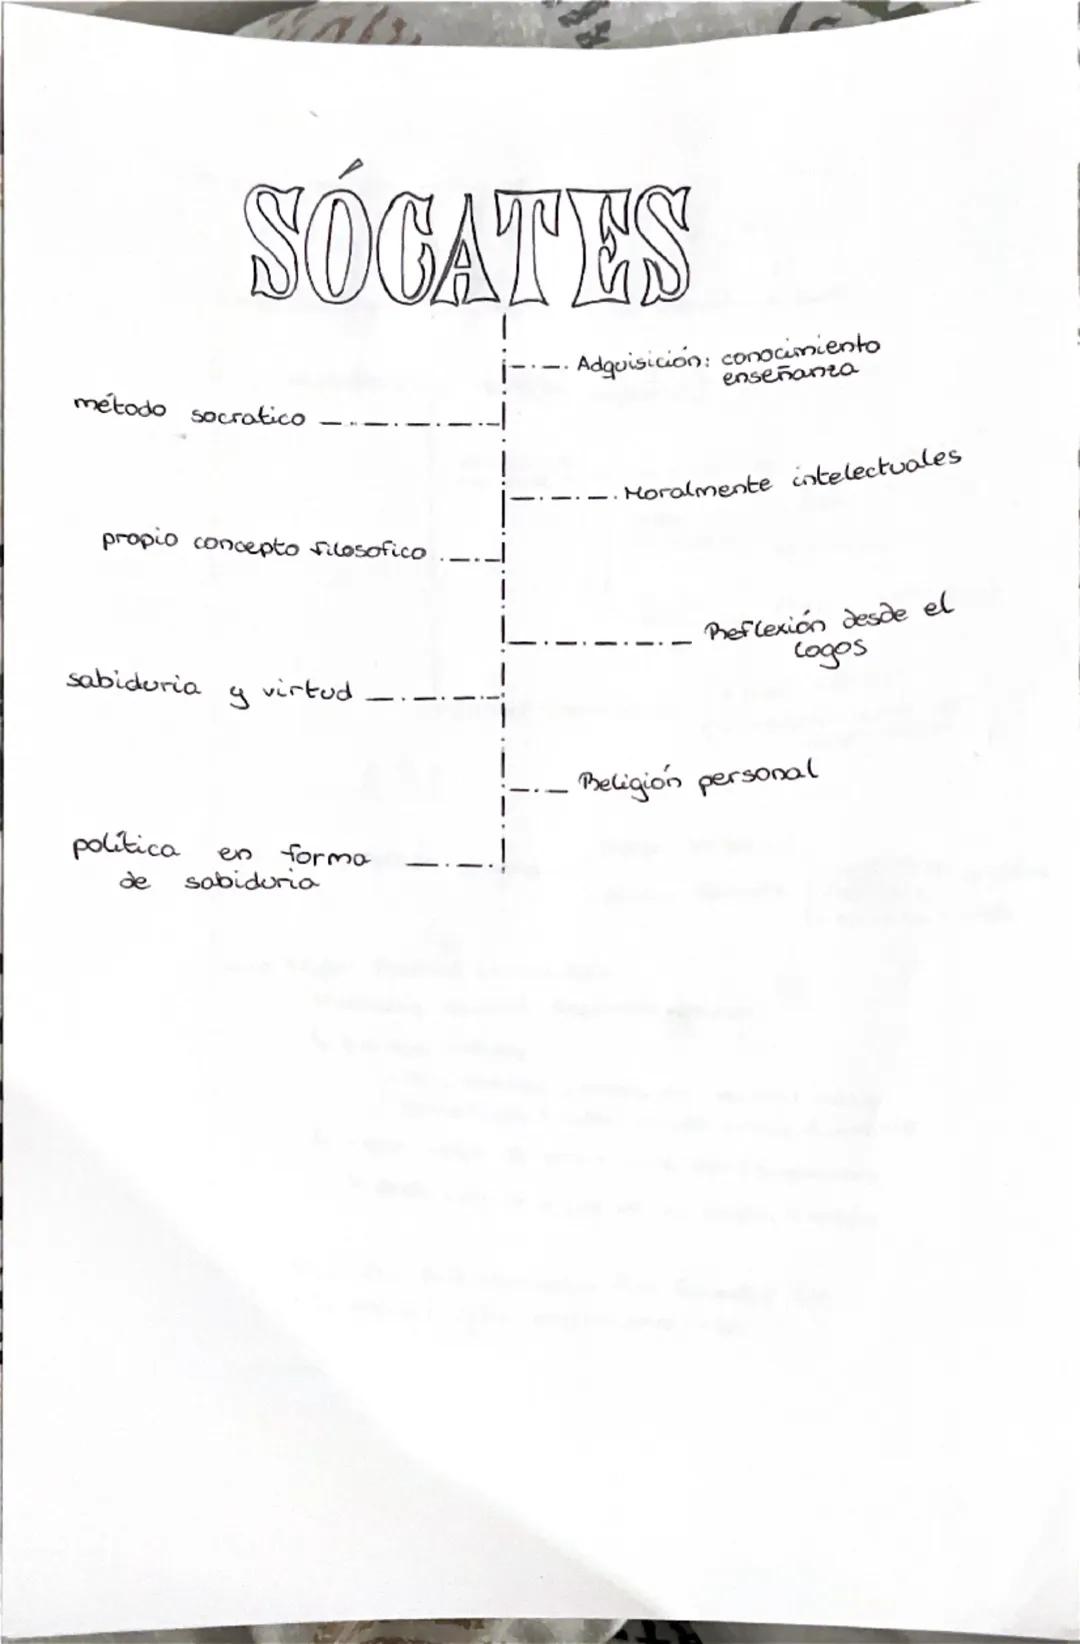 SÓCATES
Adquisición: conocimiento
enseñanza
método socratico
Moralmente intelectuales
propio concepto filosofico
Reflexión desde el
logos
sabiduria y virtud
Religión personal
política en forma
de sabiduria